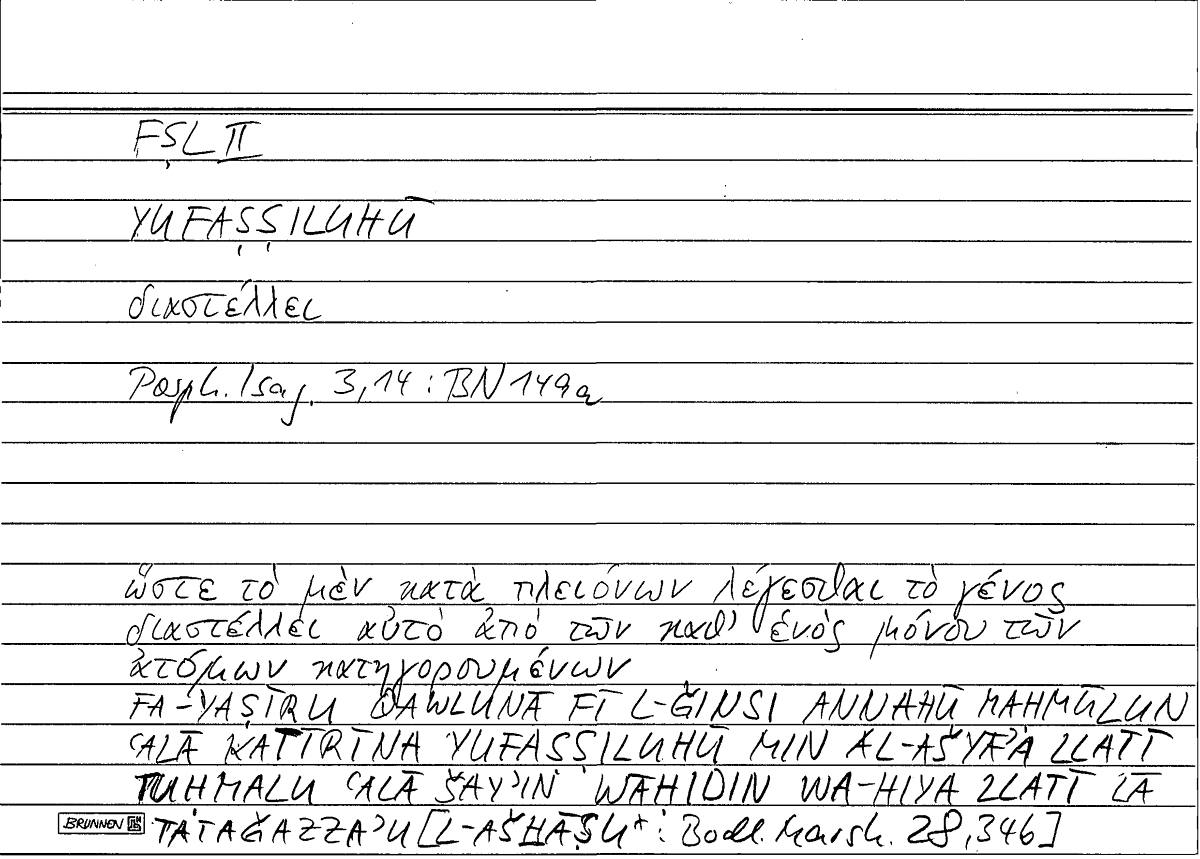 FṢL II
YUFAṢṢILUHŪ
διαστέλλει
Porph. Isag. 3,14 : BN 149a
ὥστε τὸ μὲν κατὰ πλειόνων λέγεσθαι τὸ γένος
διαστέλλει αὐτὸ ἀπὸ τῶν καθ' ἑνὸς μόνου τῶν
ἀτόμων κατηγορουμένων
FA-YAṢĪRU QAWLUNĀ FĪ L-ǦINSI ANNAHŪ MAHMŪLUN
ʿALĀ KAṮĪRĪNA YUFAṢṢILUHŪ MIN AL-AŠYĀʾA LLATĪ
TUHMALU ʿALĀ ŠAYʾIN WAHIDIN WA-HIYA LLATĪ LĀ
BRUNNEN TATAǦAZZAʾU [L-AŠḪĀṢU* : Bodl. Marsh. 28,346]